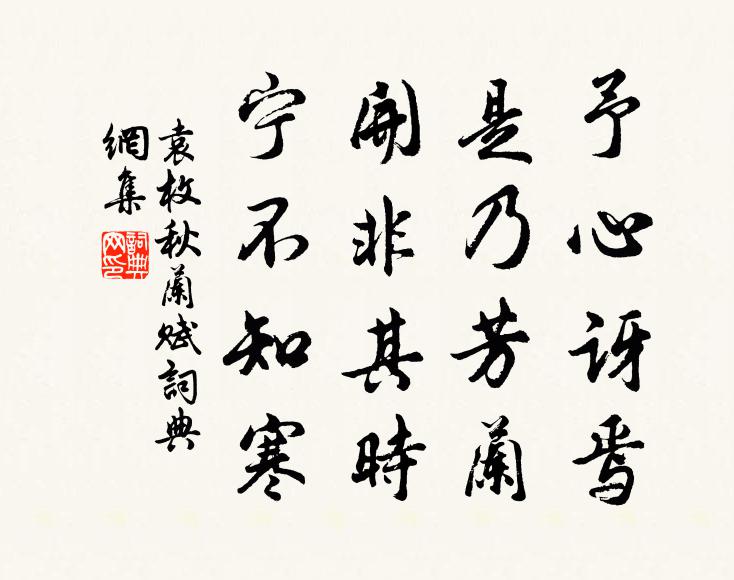 予心訝焉
是乃芳蘭
開非其時
宁不知寒
袁枚秋蘭賦詞典
網集
詞典網印